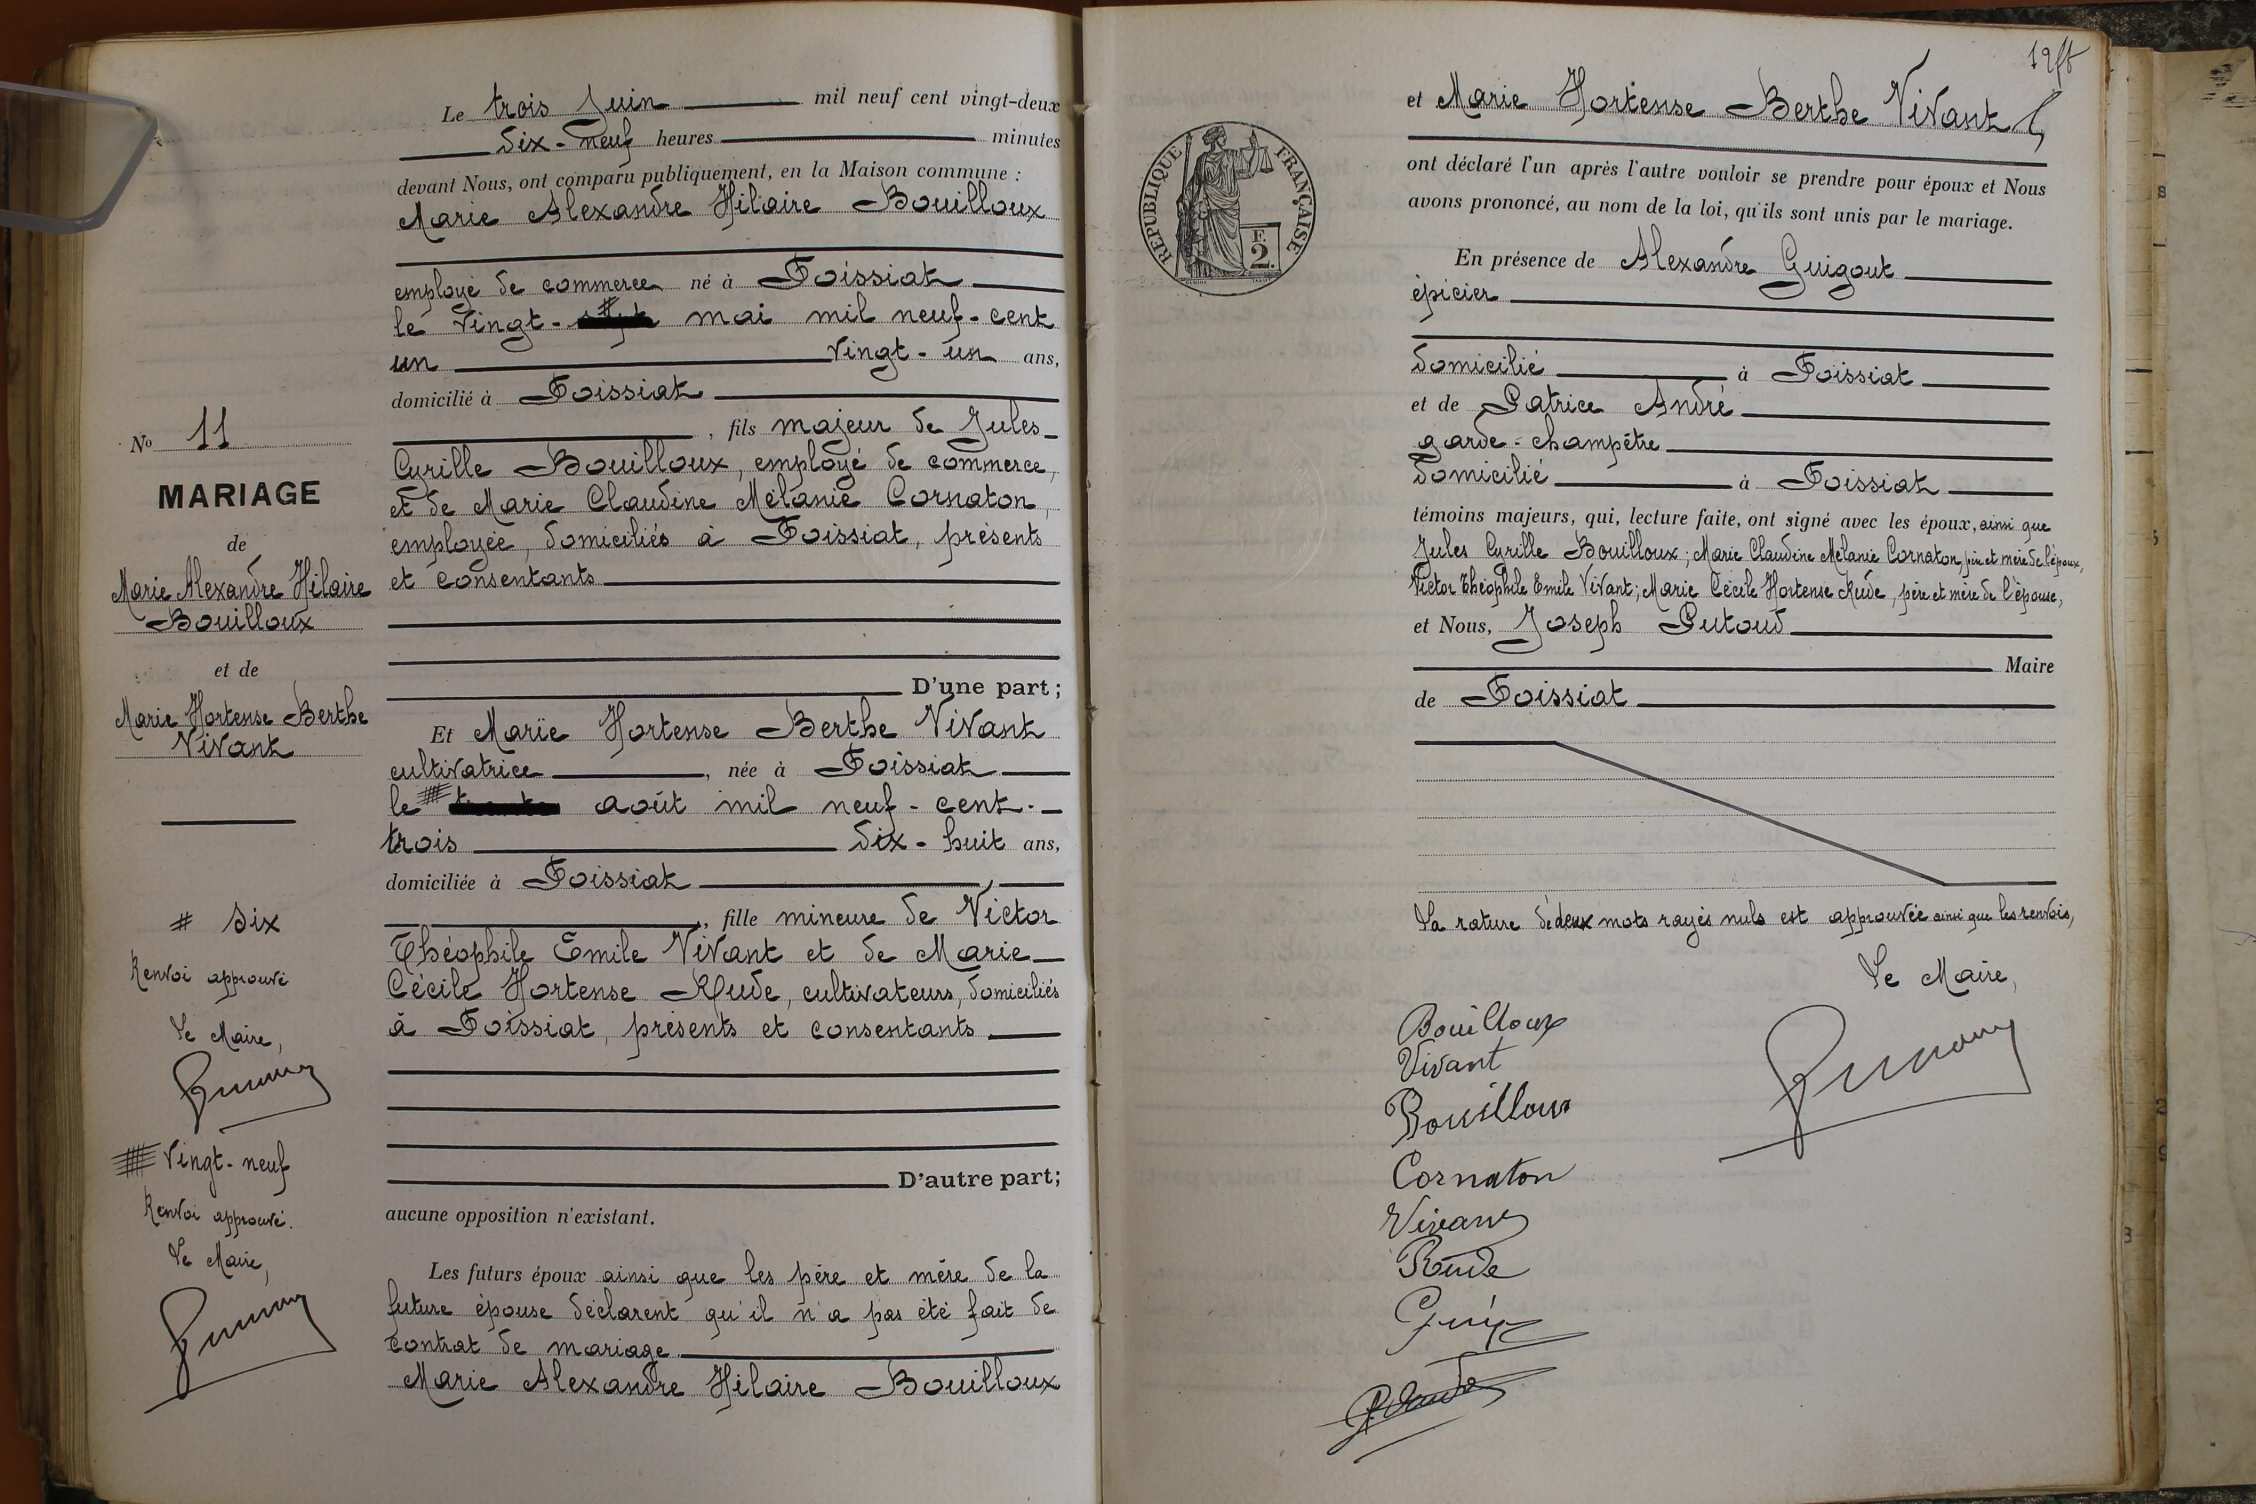 Le trois Juin mil neuf cent vingt-deux
dix-neuf heures minutes
devant Nous, ont comparu publiquement, en la Maison commune :
Marie Alexandre Hilaire Bouilloux
employé de commerce né à Foissiat
le vingt- # mai mil neuf-cent
un vingt-un ans,
domicilié à Foissiat
, fils majeur de Jules
Cyrille Bouilloux, employé de commerce,
et de Marie Claudine Mélanie Cornaton,
employée, domiciliés à Foissiat, présents
et consentants
D'une part ;
Et Marie Hortense Berthe Vivant
cultivatrice , née à Foissiat
le # août mil neuf-cent-
trois dix-huit ans,
domiciliée à Foissiat
, fille mineure de Victor
Théophile Emile Vivant et de Marie
Cécile Hortense Rude, cultivateurs, domiciliés
à Foissiat, présents et consentants
D'autre part;
aucune opposition n'existant.
Les futurs époux ainsi que les père et mère de la
future épouse déclarent qu'il n'a pas été fait de
contrat de mariage
Marie Alexandre Hilaire Bouilloux
No 11
MARIAGE
de
Marie Alexandre Hilaire
Bouilloux
et de
Marie Hortense Berthe
Vivant
# six
Renvoi approuvé
Le Maire,
# Vingt-neuf
Renvoi approuvé.
Le Maire,
et Marie Hortense Berthe Vivant
RÉPUBLIQUE FRANÇAISE
F.
2.
ont déclaré l'un après l'autre vouloir se prendre pour époux et Nous
avons prononcé, au nom de la loi, qu'ils sont unis par le mariage.
En présence de Alexandre Guigout
épicier
domicilié à Foissiat
et de Patrice André
garde-champêtre
domicilié à Foissiat
témoins majeurs, qui, lecture faite, ont signé avec les époux, ainsi que
Jules Cyrille Bouilloux; Marie Claudine Mélanie Cornaton, père et mère de l'époux,
Victor Théophile Emile Vivant; Marie Cécile Hortense Rude, père et mère de l'épouse,
et Nous, Joseph Putoud
Maire
de Foissiat
La rature de deux mots rayés nuls est approuvée ainsi que les renvois,
Le Maire,
Bouilloux
Vivant
Bouilloux
Cornaton
Vivant
Rude